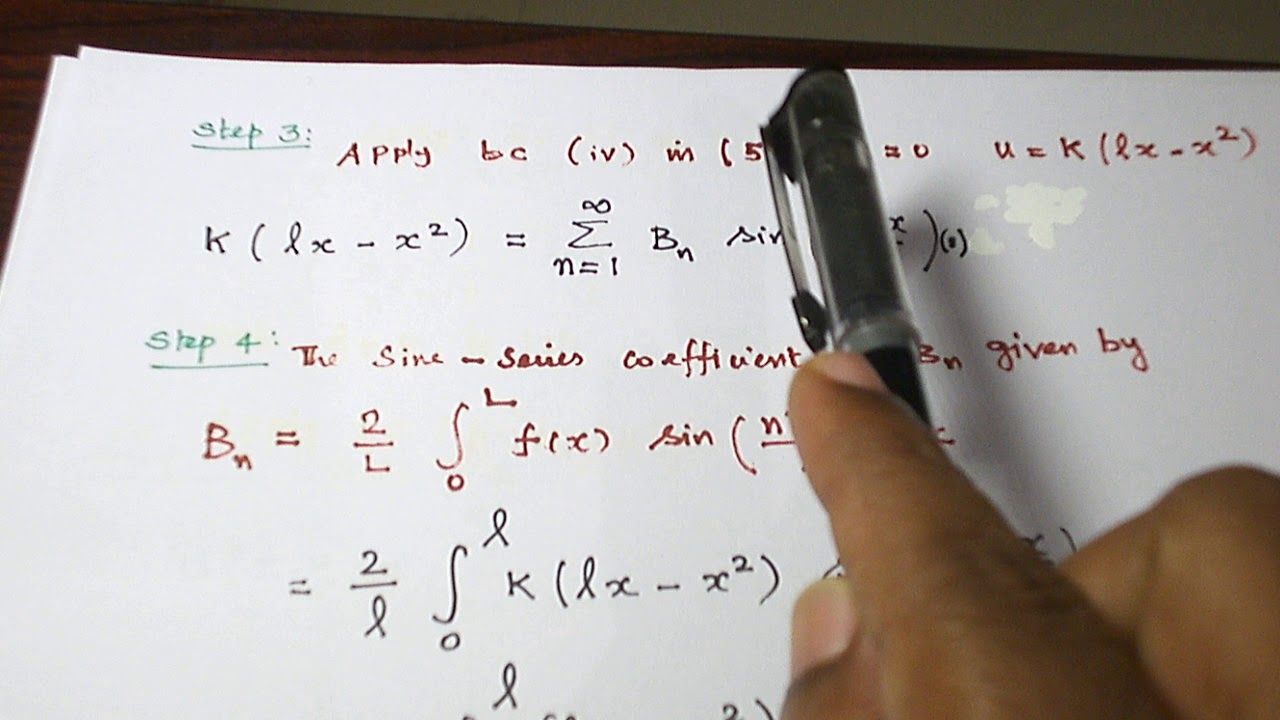 Step 3: Apply bc (iv) in (5 =0 u = K(lx - x²)
K(lx - x²) = ∞ Σ n=1 Bₙ sin x)(0)
Step 4: The Sine - Series coefficient Bₙ given by
Bₙ = 2/L ∫₀ᴸ f(x) sin (n
= 2/l ∫₀ˡ K(lx - x²)
l